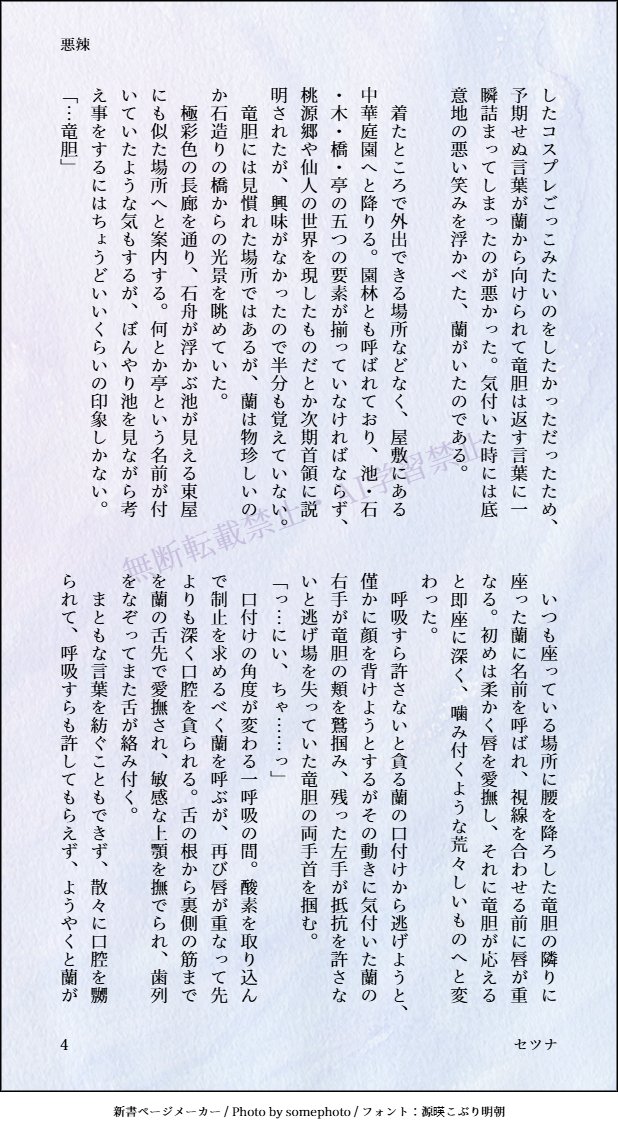 悪辣
したコスプレごっこみたいのをしたかっただったため、
予期せぬ言葉が蘭から向けられて竜胆は返す言葉に一
瞬詰まってしまったのが悪かった。気付いた時には底
意地の悪い笑みを浮かべた、蘭がいたのである。
着たところで外出できる場所などなく、屋敷にある
中華庭園へと降りる。園林とも呼ばれており、池・石
・木・橋・亭の五つの要素が揃っていなければならず、
桃源郷や仙人の世界を現したものだとか次期首領に説
明されたが、興味がなかったので半分も覚えていない。
竜胆には見慣れた場所ではあるが、蘭は物珍しいの
か石造りの橋からの光景を眺めていた。
極彩色の長廊を通り、石舟が浮かぶ池が見える東屋
にも似た場所へと案内する。何とか亭という名前が付
いていたような気もするが、ぼんやり池を見ながら考
え事をするにはちょうどいいくらいの印象しかない。
「…竜胆」
いつも座っている場所に腰を降ろした竜胆の隣りに
座った蘭に名前を呼ばれ、視線を合わせる前に唇が重
なる。初めは柔かく唇を愛撫し、それに竜胆が応える
と即座に深く、噛み付くような荒々しいものへと変
わった。
呼吸すら許さないと貪る蘭の口付けから逃げようと、
僅かに顔を背けようとするがその動きに気付いた蘭の
右手が竜胆の頬を鷲掴み、残った左手が抵抗を許さな
いと逃げ場を失っていた竜胆の両手首を掴む。
「っ…にい、ちゃ……っ」
口付けの角度が変わる一呼吸の間。酸素を取り込ん
で制止を求めるべく蘭を呼ぶが、再び唇が重なって先
よりも深く口腔を貪られる。舌の根から裏側の筋まで
を蘭の舌先で愛撫され、敏感な上顎を撫でられ、歯列
をなぞってまた舌が絡み付く。
まともな言葉を紡ぐこともできず、散々に口腔を嬲
られて、呼吸すらも許してもらえず、ようやくと蘭が
無断転載禁止・AI学習禁止
4
セツナ
新書ページメーカー / Photo by somephoto / フォント：源暎こぶり明朝